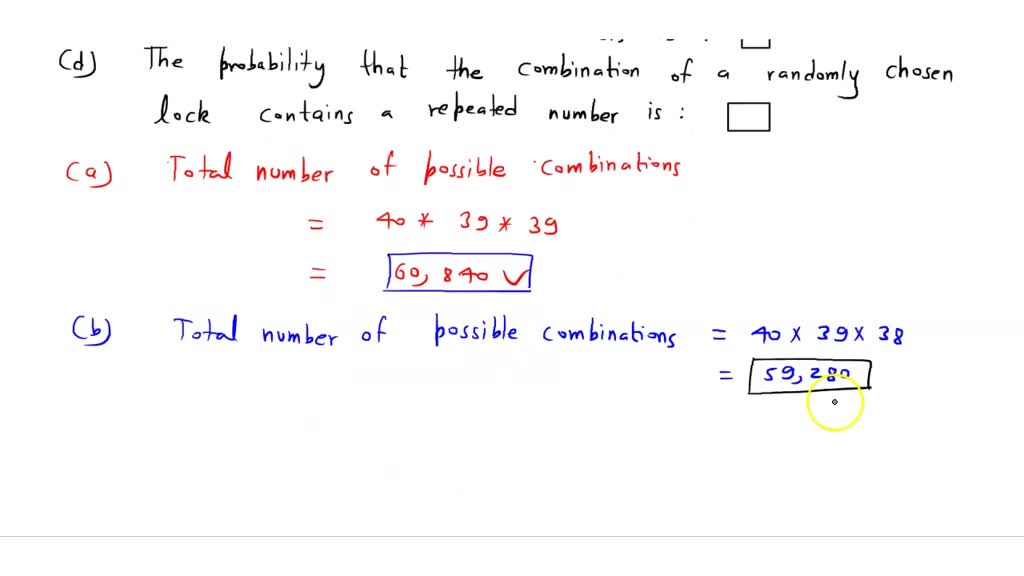 (d) The probability that the combination of a randomly chosen
lock contains a repeated number is :
(a) Total number of possible combinations
= 40 * 39 * 39
= 60, 840 ✓
(b) Total number of possible combinations = 40 x 39 x 38
= 59, 280